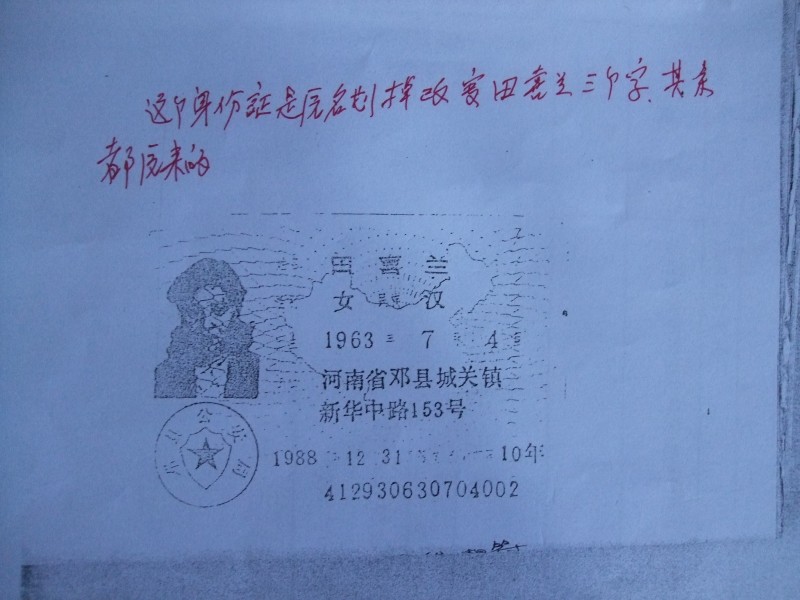 这个身份证是原名划掉改写田喜兰三个字、其余
都原来的
田 喜 兰
女 汉
1963 7 4
河南省邓县城关镇
新华中路153号
邓县公安局
1988 12 31 10年
412930630704002